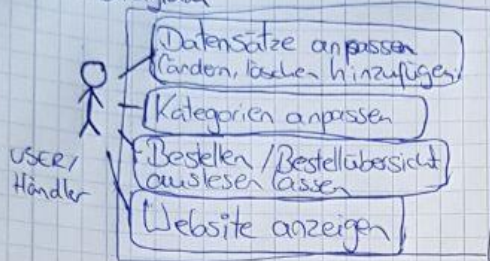 Datensätze anpassen
(ändern, löschen hinzufügen)
Kategorien anpassen
Bestellen / Bestellübersicht
auslesen lassen
Website anzeigen
USER/
Händler